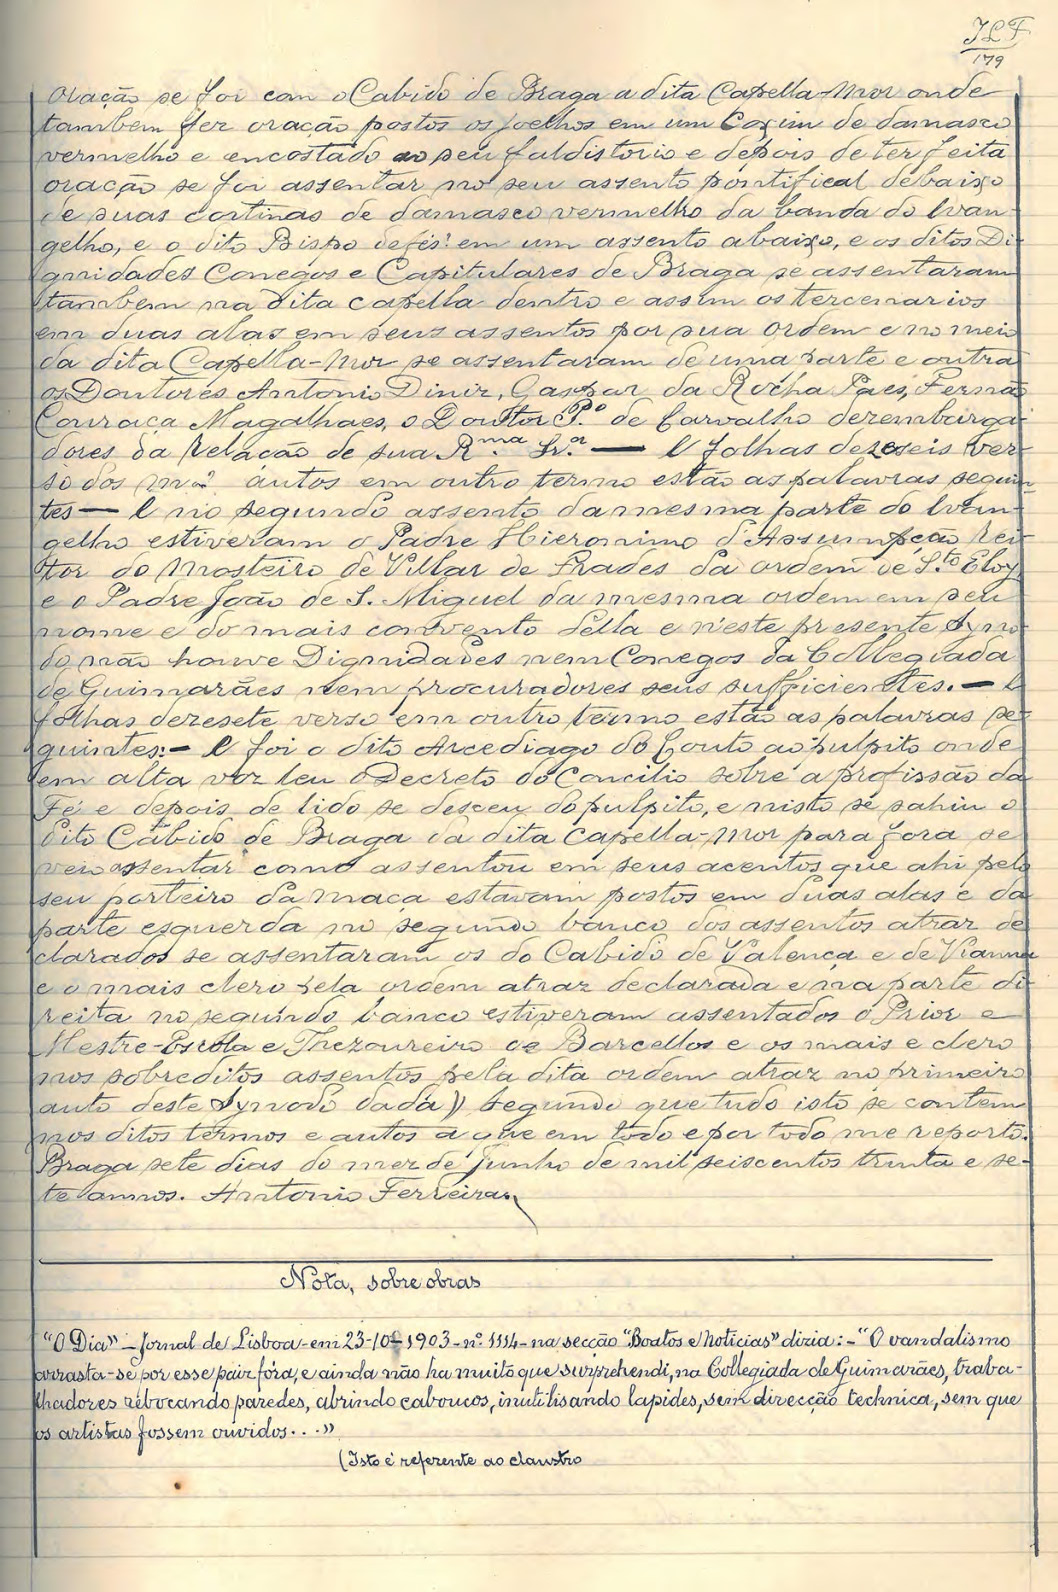 JLF
179
oração se foi com o Cabido de Braga a dita Capella-Mor onde
tambem fez oração postos os joelhos em um Coxim de damasco
vermelho e encostado ao seu faldistorio e depois de ter feita
oração se foi assentar no seu assento pontifical debaixo
de suas cortinas de damasco vermelho da banda do Evan-
gelho, e o dito Bispo em um assento abaixo, e os ditos Di-
gnidades Conegos e Capitulares de Braga se assentaram
tambem na dita capella dentro e assim os tercenarios
em duas alas em seus assentos por sua ordem e no meio
da dita Capella-Mor se assentaram de uma parte e outra
os Doutores Antonio Diniz, Gaspar da Rocha Paes, Fernão
Couraça Magalhaes, o Doutor P.º de Carvalho dezembarga-
dores da Relação de sua R.ma Sr.a — E folhas dezeseis ver-
so dos m.os autos em outro termo estão as palavras seguin-
tes — E no segundo assento da mesma parte do Evan-
gelho estiveram o Padre Hieronimo d'Assumpção Rei-
tor do Mosteiro de Villar de Frades da ordem de S.to Eloy
e o Padre João de S. Miguel da mesma ordem em seu
nome e do mais convento della e n'este presente Syno-
do não houve Dignidades nem Conegos da Collegiada
de Guimarães nem procuradores seus sufficientes. — E
folhas dezesete verso em outro termo estão as palavras se-
guintes: — E foi o dito Arcediago do Couto ao pulpito onde
em alta voz leu o Decreto do Concilio sobre a profissão da
Fé e depois de lido se desceu do pulpito, e nisto se sahiu o
dito Cabido de Braga da dita Capella-Mor para fora se
veio assentar como assentou em seus acentos que ahi pelo
seu porteiro da maça estavam postos em duas alas e da
parte esquerda no segundo banco dos assentos atraz de-
clarados se assentaram os do Cabido de Valença e de Vianna
e o mais clero pela ordem atraz declarada e na parte di-
reita no segundo banco estiveram assentados o Prior e
Mestre-Escola e Thezoureiro de Barcellos e os mais e clero
nos sobreditos assentos pela dita ordem atraz no primeiro
auto deste Synodo dada)) segundo que tudo isto se contem
nos ditos termos e autos a que em todo e por todo me reporto.
Braga sete dias do mez de Junho de mil seiscentos trinta e se-
te annos. Antonio Ferreira.
Nota, sobre obras
"O Dia" – Jornal de Lisboa – em 23-10-1903 – nº. 1114 – na secção "Boatos e Noticias" dizia: – "O vandalismo
arrasta-se por esse paiz fóra, e ainda não ha muito que surprehendi, na Collegiada de Guimarães, traba-
lhadores rebocando paredes, abrindo caboucos, inutilisando lapides, sem direcção technica, sem que
os artistas fossem ouvidos...»
(Isto é referente ao claustro